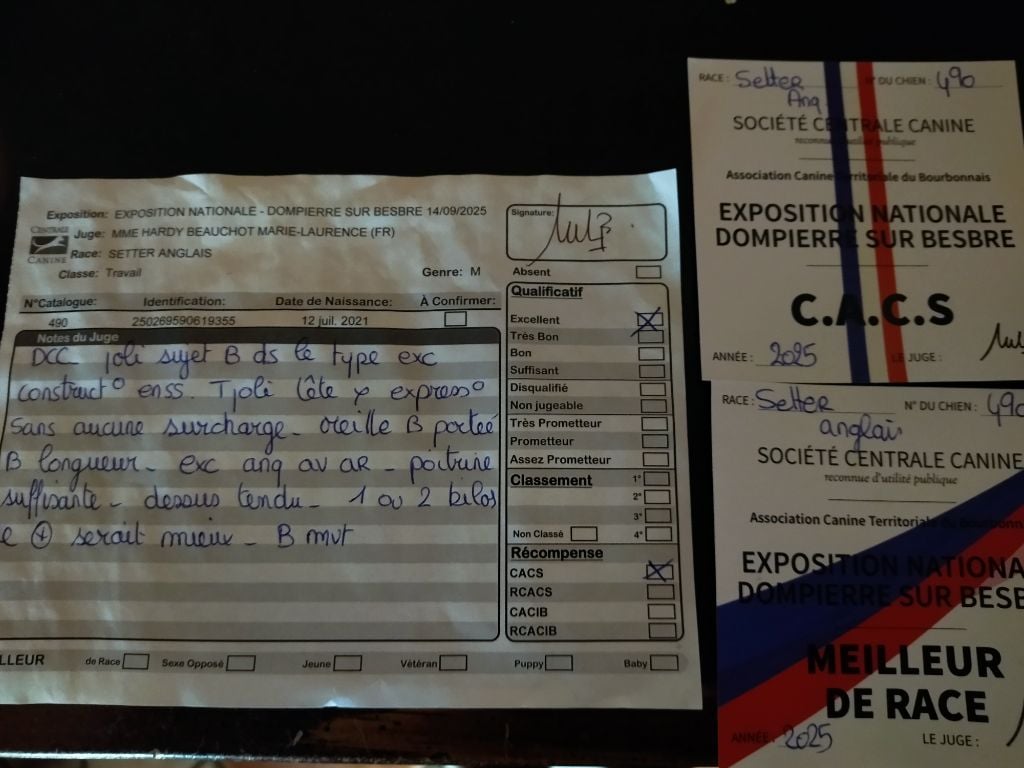 Exposition: EXPOSITION NATIONALE - DOMPIERRE SUR BESBRE 14/09/2025
CENTRALE CANINE
Juge: MME HARDY BEAUCHOT MARIE-LAURENCE (FR)
Race: SETTER ANGLAIS
Classe: Travail Genre: M
Signature:
N°Catalogue: Identification: Date de Naissance: À Confirmer:
490 250269590619355 12 juil. 2021
Notes du Juge
DCC joli sujet B ds le type exc
construct° enss. Tjoli tête & express°
Sans aucune surcharge - oreille B portée
B longueur - exc ang av AR - poitrine
suffisante - dessus tendu - 1 ou 2 kilos
e + serait mieux - B mvt
Absent
Qualificatif
Excellent
Très Bon
Bon
Suffisant
Disqualifié
Non jugeable
Très Prometteur
Prometteur
Assez Prometteur
Classement 1°
2°
3°
Non Classé 4°
Récompense
CACS
RCACS
CACIB
RCACIB
LLEUR de Race Sexe Opposé Jeune Vétéran Puppy Baby
RACE: Setter Ang. N° DU CHIEN: 490
SOCIÉTÉ CENTRALE CANINE
reconnue d'utilité publique
Association Canine Territoriale du Bourbonnais
EXPOSITION NATIONALE
DOMPIERRE SUR BESBRE
C.A.C.S
ANNÉE: 2025 LE JUGE:
RACE: Setter anglais N° DU CHIEN: 490
SOCIÉTÉ CENTRALE CANINE
reconnue d'utilité publique
Association Canine Territoriale du Bourbonn
EXPOSITION NATIONA
DOMPIERRE SUR BESB
MEILLEUR
DE RACE
ANNÉE: 2025 LE JUGE: